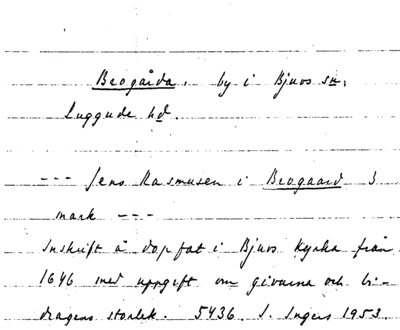 Brogårda, by i Bjuvs sn,
Luggude hd.
--- Jens Rasmusen i Brogaard 3
mark ---
Inskrift å dopfat i Bjuvs kyrka från
1646 med uppgift om givarna och bi-
dragens storlek. 5436. S. Ingers 1953.